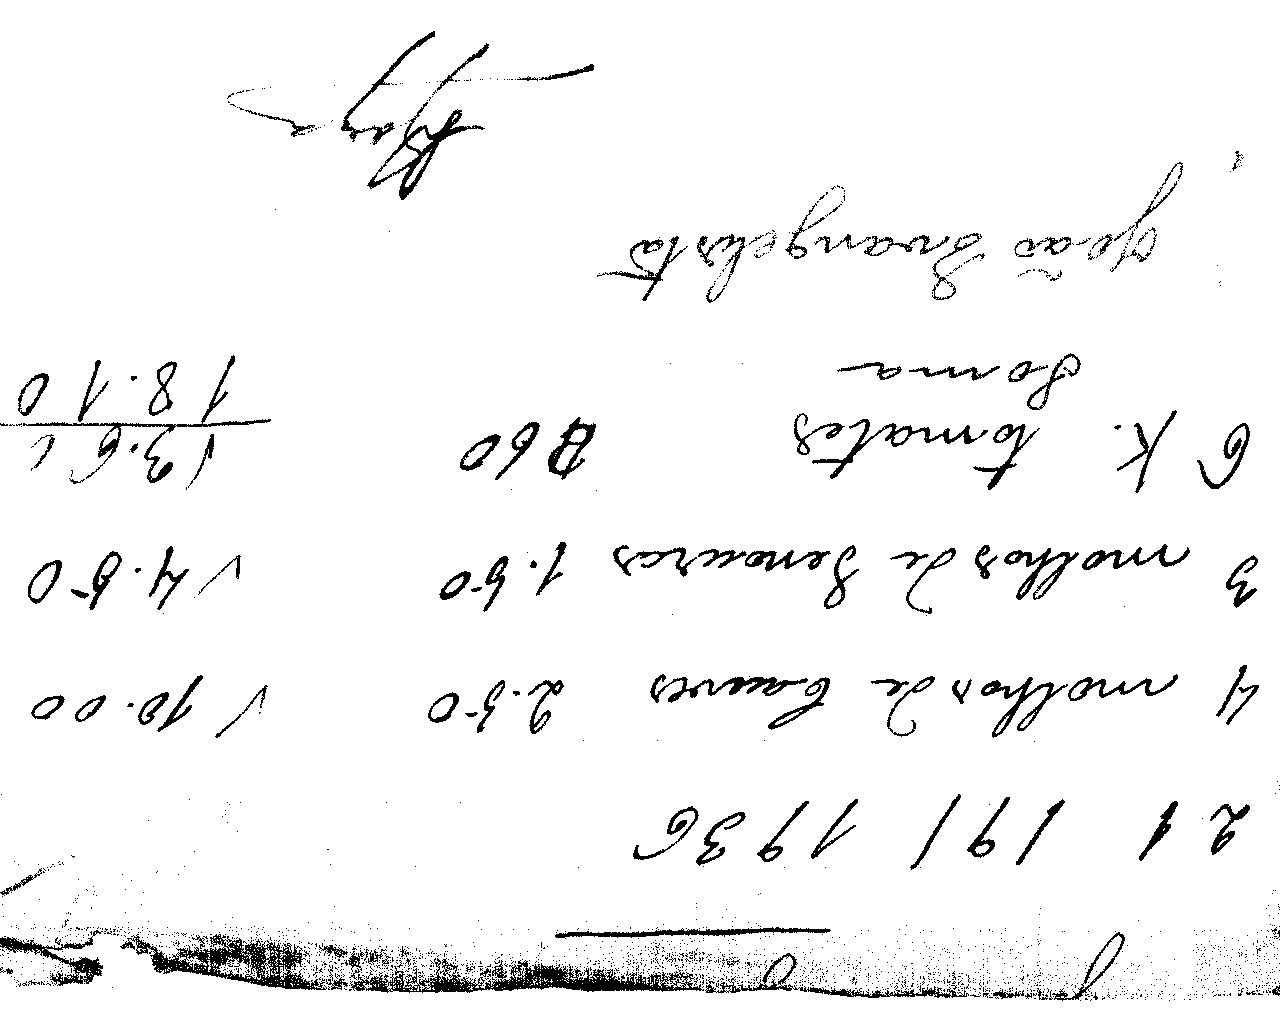 21 / 9 / 1936
4 molhos de Couves 2.50 √ 10.00
3 molhos de Senouras 1.50 √ 4.50
6 K. tomates 060 √ 3.60
Soma 18.10
João Evangelista